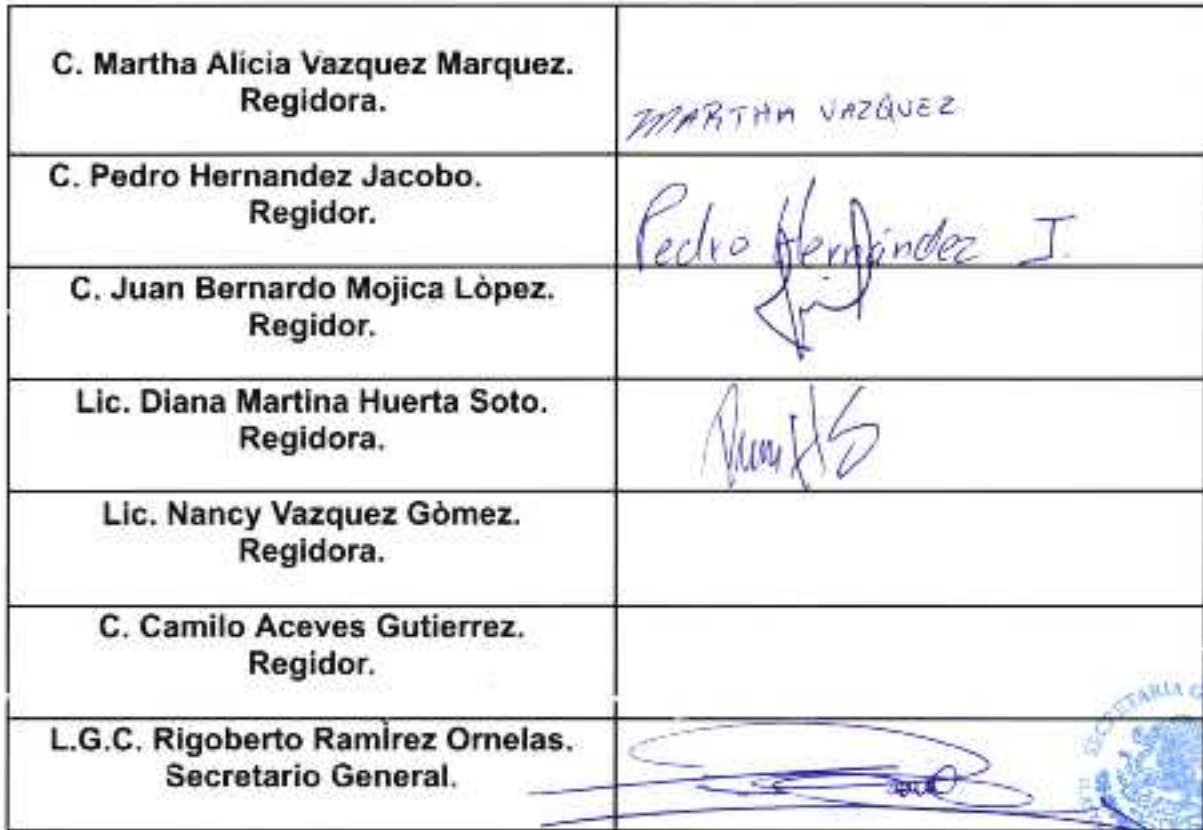 C. Martha Alicia Vazquez Marquez.
Regidora.
MARTHA VAZQUEZ
C. Pedro Hernandez Jacobo.
Regidor.
Pedro Hernández J.
C. Juan Bernardo Mojica Lòpez.
Regidor.
Lic. Diana Martina Huerta Soto.
Regidora.
Lic. Nancy Vazquez Gòmez.
Regidora.
C. Camilo Aceves Gutierrez.
Regidor.
L.G.C. Rigoberto Ramìrez Ornelas.
Secretario General.